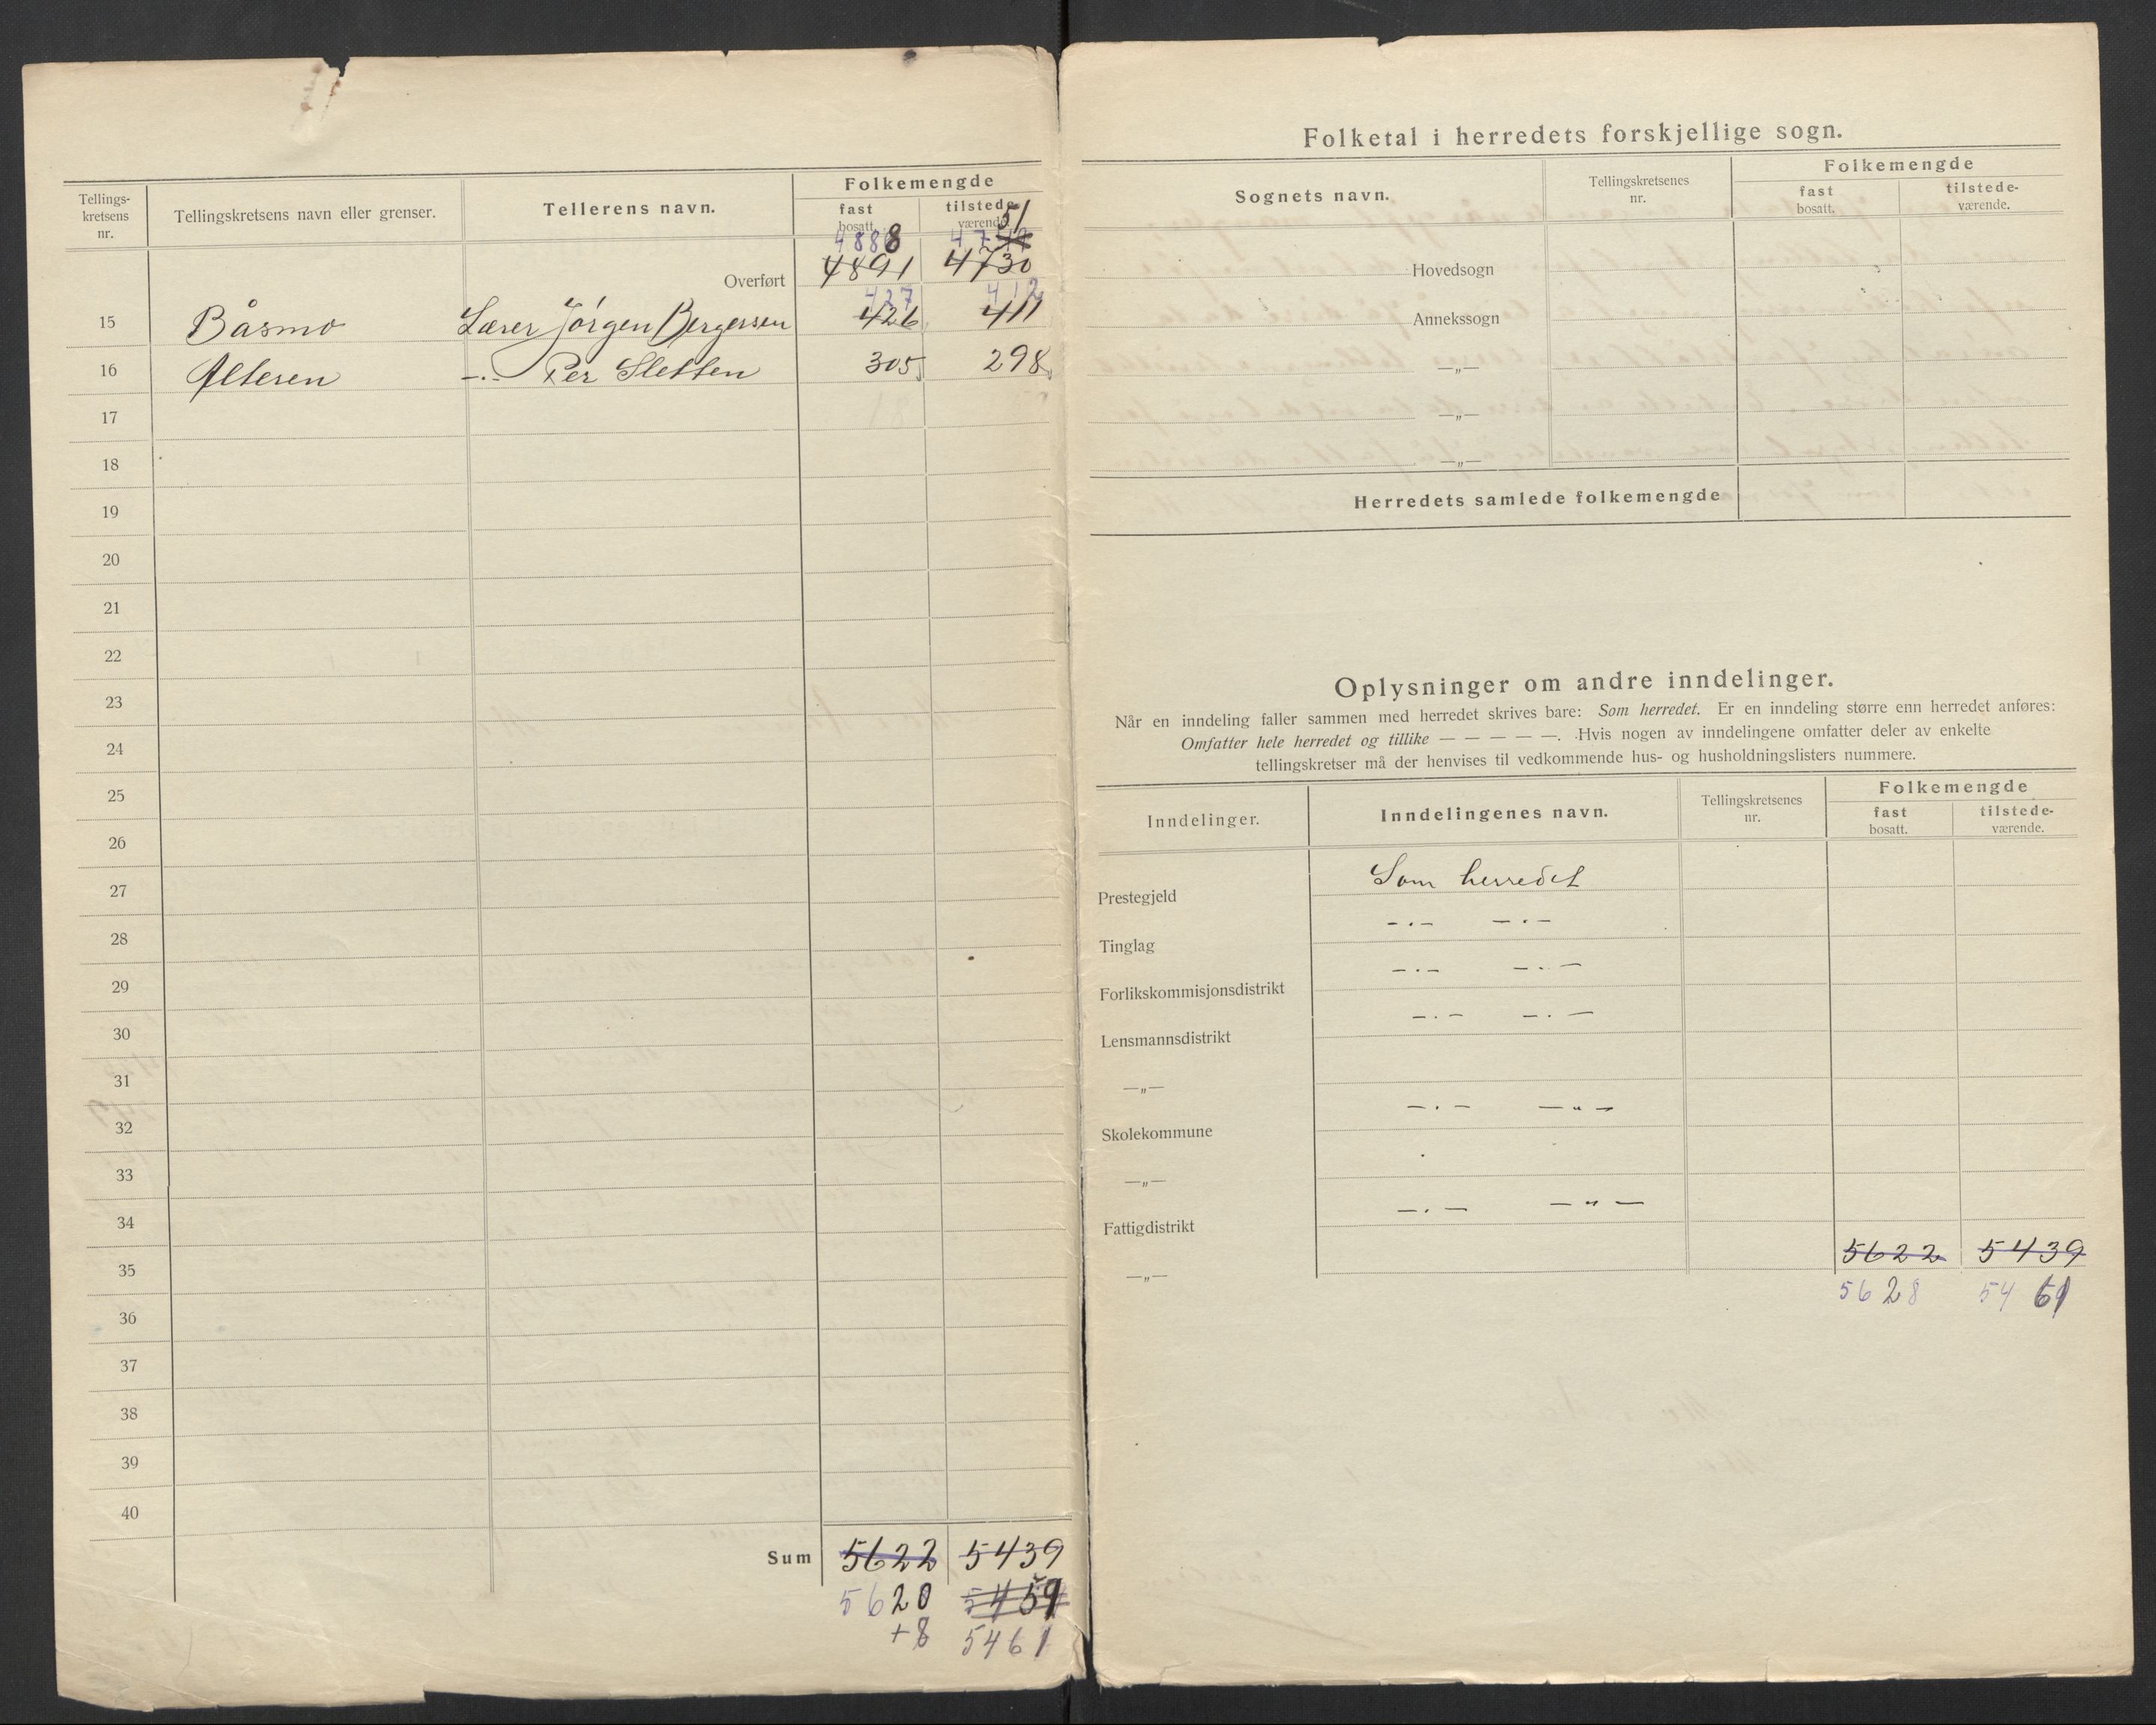 Tellings-
kretsens
nr.
Tellingskretsens navn eller grenser.
Tellerens navn.
Folkemengde
fast
bosatt.
tilstede-
værende.
51
4888 47
Overført 4891 4730
427 412
15 Båsmo Lærer Jørgen Bergersen 426 411
16 Alteren -.- Per Sletten 305 298
17
18
19
20
21
22
23
24
25
26
27
28
29
30
31
32
33
34
35
36
37
38
39
40
Sum 5622 5439
5620 5459
+8 5461
Folketal i herredets forskjellige sogn.
Sognets navn.
Tellingskretsenes
nr.
Folkemengde
fast
bosatt.
tilstede-
værende.
Hovedsogn
Annekssogn
—„—
—„—
—„—
Herredets samlede folkemengde
Oplysninger om andre inndelinger.
Når en inndeling faller sammen med herredet skrives bare: Som herredet. Er en inndeling større enn herredet anføres:
Omfatter hele herredet og tillike — — — — —. Hvis nogen av inndelingene omfatter deler av enkelte
tellingskretser må der henvises til vedkommende hus- og husholdningslisters nummere.
Inndelinger.
Inndelingenes navn.
Tellingskretsenes
nr.
Folkemengde
fast
bosatt.
tilstede-
værende.
Prestegjeld Som herredet
Tinglag -.- -.-
Forlikskommisjonsdistrikt -.- -.-
Lensmannsdistrikt -.- -.-
—„—
Skolekommune -.- -„-
—„—
Fattigdistrikt -.- -„-
—„— 5622 5439
5628 5461